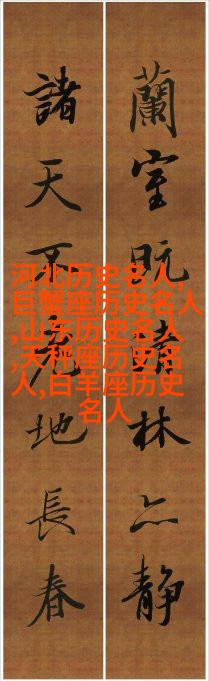 蘭室既晴林亦静
諸天不老地長春
河北历史名人,
巨蟹座历史名人
,山东历史名人
,天秤座历史名
人,白羊座历史
名人